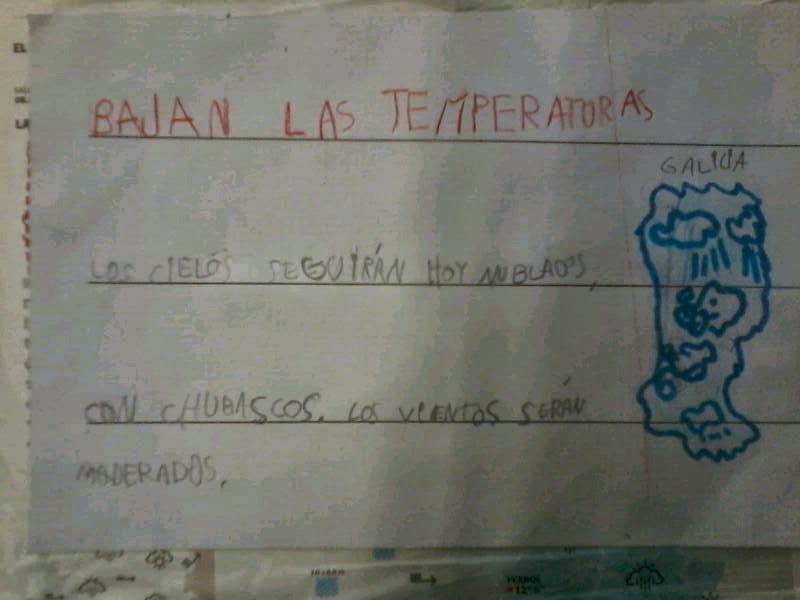 BAJAN LAS TEMPERATORAS
GALICIA
LOS CIELOS SEGUIRÁN HOY NUBLADOS,
CON CHUBASCOS. LOS VIENTOS SERÁN
MODERADOS.
EL
LA
FERROL
12°